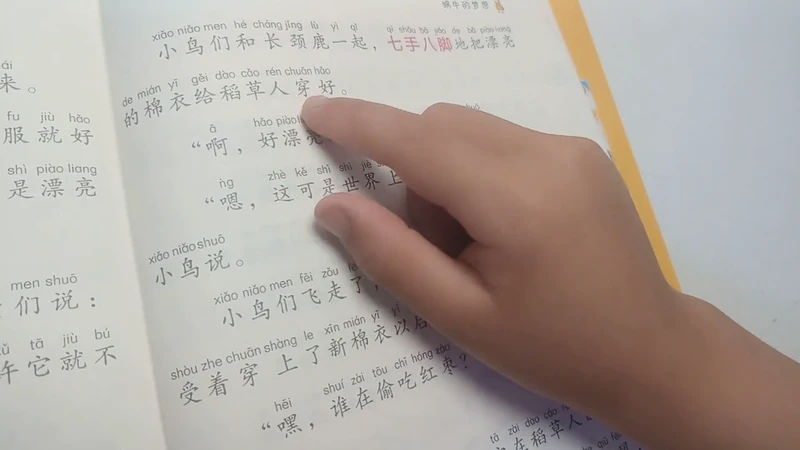 蜗牛的梦想
xiǎo niǎo men hé cháng jǐng lù yì qǐ
小鸟们和长颈鹿一起，七手八脚地把漂亮
de mián yī gěi dào cǎo rén chuān hǎo
的棉衣给稻草人穿好。
ā hǎo piào
“啊，好漂亮
ǹg zhè kě shì shì jiè
“嗯，这可是世界上
xiǎo niǎo shuō
小鸟说。
xiǎo niǎo men fēi zǒu le
小鸟们飞走了，
shòu zhe chuān shàng le xīn mián yī yǐ
受着穿上了新棉衣以后
hēi shuí zài tōu chī hóng zǎo
“嘿，谁在偷吃红枣？
tā zài dào cǎo rén
在稻草人
来。
fu jiù hǎo
服就好
shì piào liang
是漂亮
men shuō
们说：
tā jiù bú
它就不